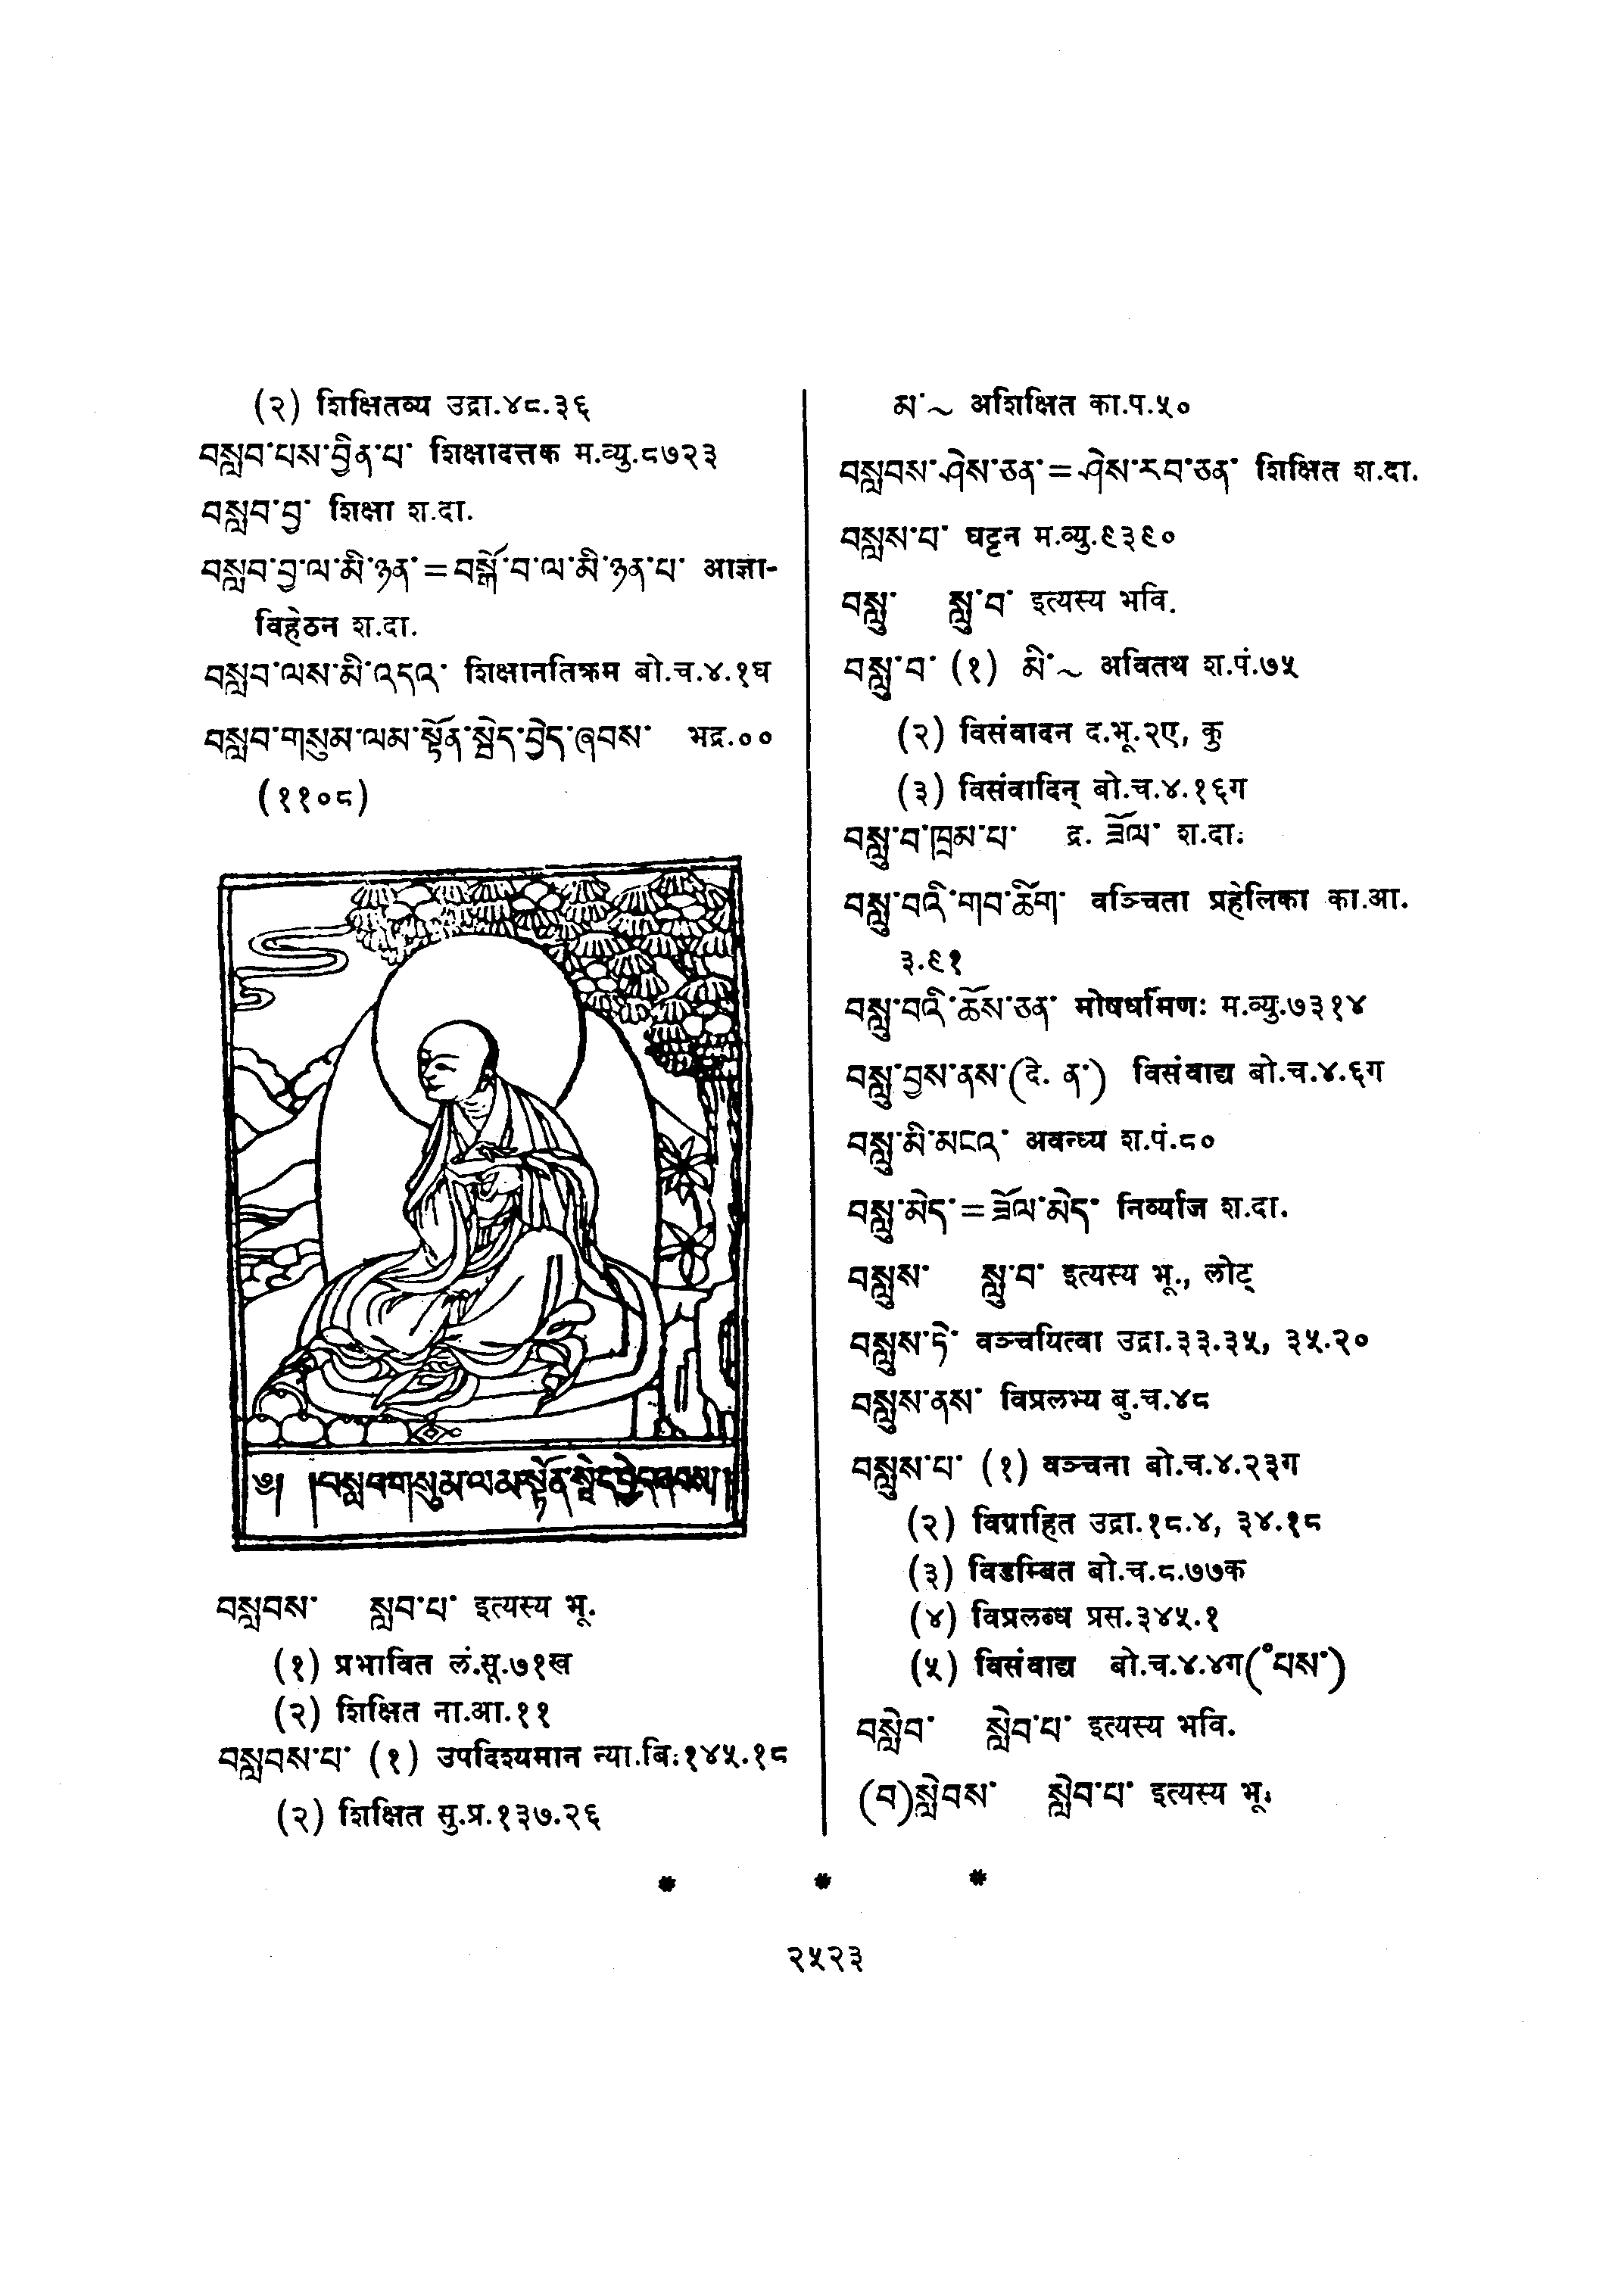 (२) शिक्षितव्य उद्रा.४८.३६
བསླབ་པས་བྱིན་པ་ शिक्षादत्तक म.व्यु.८७२३
བསླབ་བྱ་ शिक्षा श.दा.
བསླབ་བྱ་ལ་མི་ཉན་=བསྒོ་བ་ལ་མི་ཉན་པ་ आज्ञा-
विहेठन श.दा.
བསླབ་ལས་མི་འདའ་ शिक्षानतिक्रम बो.च.४.१घ
བསླབ་གསུམ་ལམ་སྟོན་སྦྱེད་བྱེད་ཞབས་ भद्र.००
(११०८)
༄། །བསླབ་གསུམ་ལམ་སྟོན་སྦྱེད་བྱེད་ཞབས། །
བསླབས་ སླབ་པ་ इत्यस्य भू.
(१) प्रभावित लं.सू.७१ख
(२) शिक्षित ना.आ.११
བསླབས་པ་ (१) उपदिश्यमान न्या.बि.१४५.१८
(२) शिक्षित सु.प्र.१३७.२६
མ་~ अशिक्षित का.प.५०
བསླབས་ཤེས་ཅན་=ཤེས་རབ་ཅན་ शिक्षित श.दा.
བསླས་བ་ घट्टन म.व्यु.९३९०
བསླུ་ སླུ་བ་ इत्यस्य भवि.
བསླུ་བ་ (१) མི་~ अवितथ श.पं.७५
(२) विसंवादन द.भू.२ए, कु
(३) विसंवादिन् बो.च.४.१६ग
བསླུ་བ་ཁྲམ་པ་ द्र. ཟོལ་ श.दा.
བསླུ་བའི་གབ་ཚིག་ वञ्चिता प्रहेलिका का.आ.
३.९१
བསླུ་བའི་ཆོས་ཅན་ मोषधर्मिणः म.व्यु.७३१४
བསླུ་བྱས་ནས་(དེ. ན་) विसंवाद्य बो.च.४.६ग
བསླུ་མི་མངའ་ अवन्ध्य श.पं.८०
བསླུ་མེད་=ཟོལ་མེད་ निर्व्याज श.दा.
བསླུས་ སླུ་བ་ इत्यस्य भू., लोट्
བསླུས་ཏེ་ वञ्चयित्वा उद्रा.३३.३५, ३५.२०
བསླུས་ནས་ विप्रलभ्य बु.च.४८
བསླུས་པ་ (१) वञ्चना बो.च.४.२३ग
(२) विप्राहित उद्रा.१८.४, ३४.१८
(३) विडम्बित बो.च.८.७७क
(४) विप्रलब्ध प्रस.३४५.१
(५) विसंवाद्य बो.च.४.४ग(°པས་)
བསླེབ་ སླེབ་པ་ इत्यस्य भवि.
(བ)སླེབས་ སླེབ་པ་ इत्यस्य भू.
* * *
२५२३